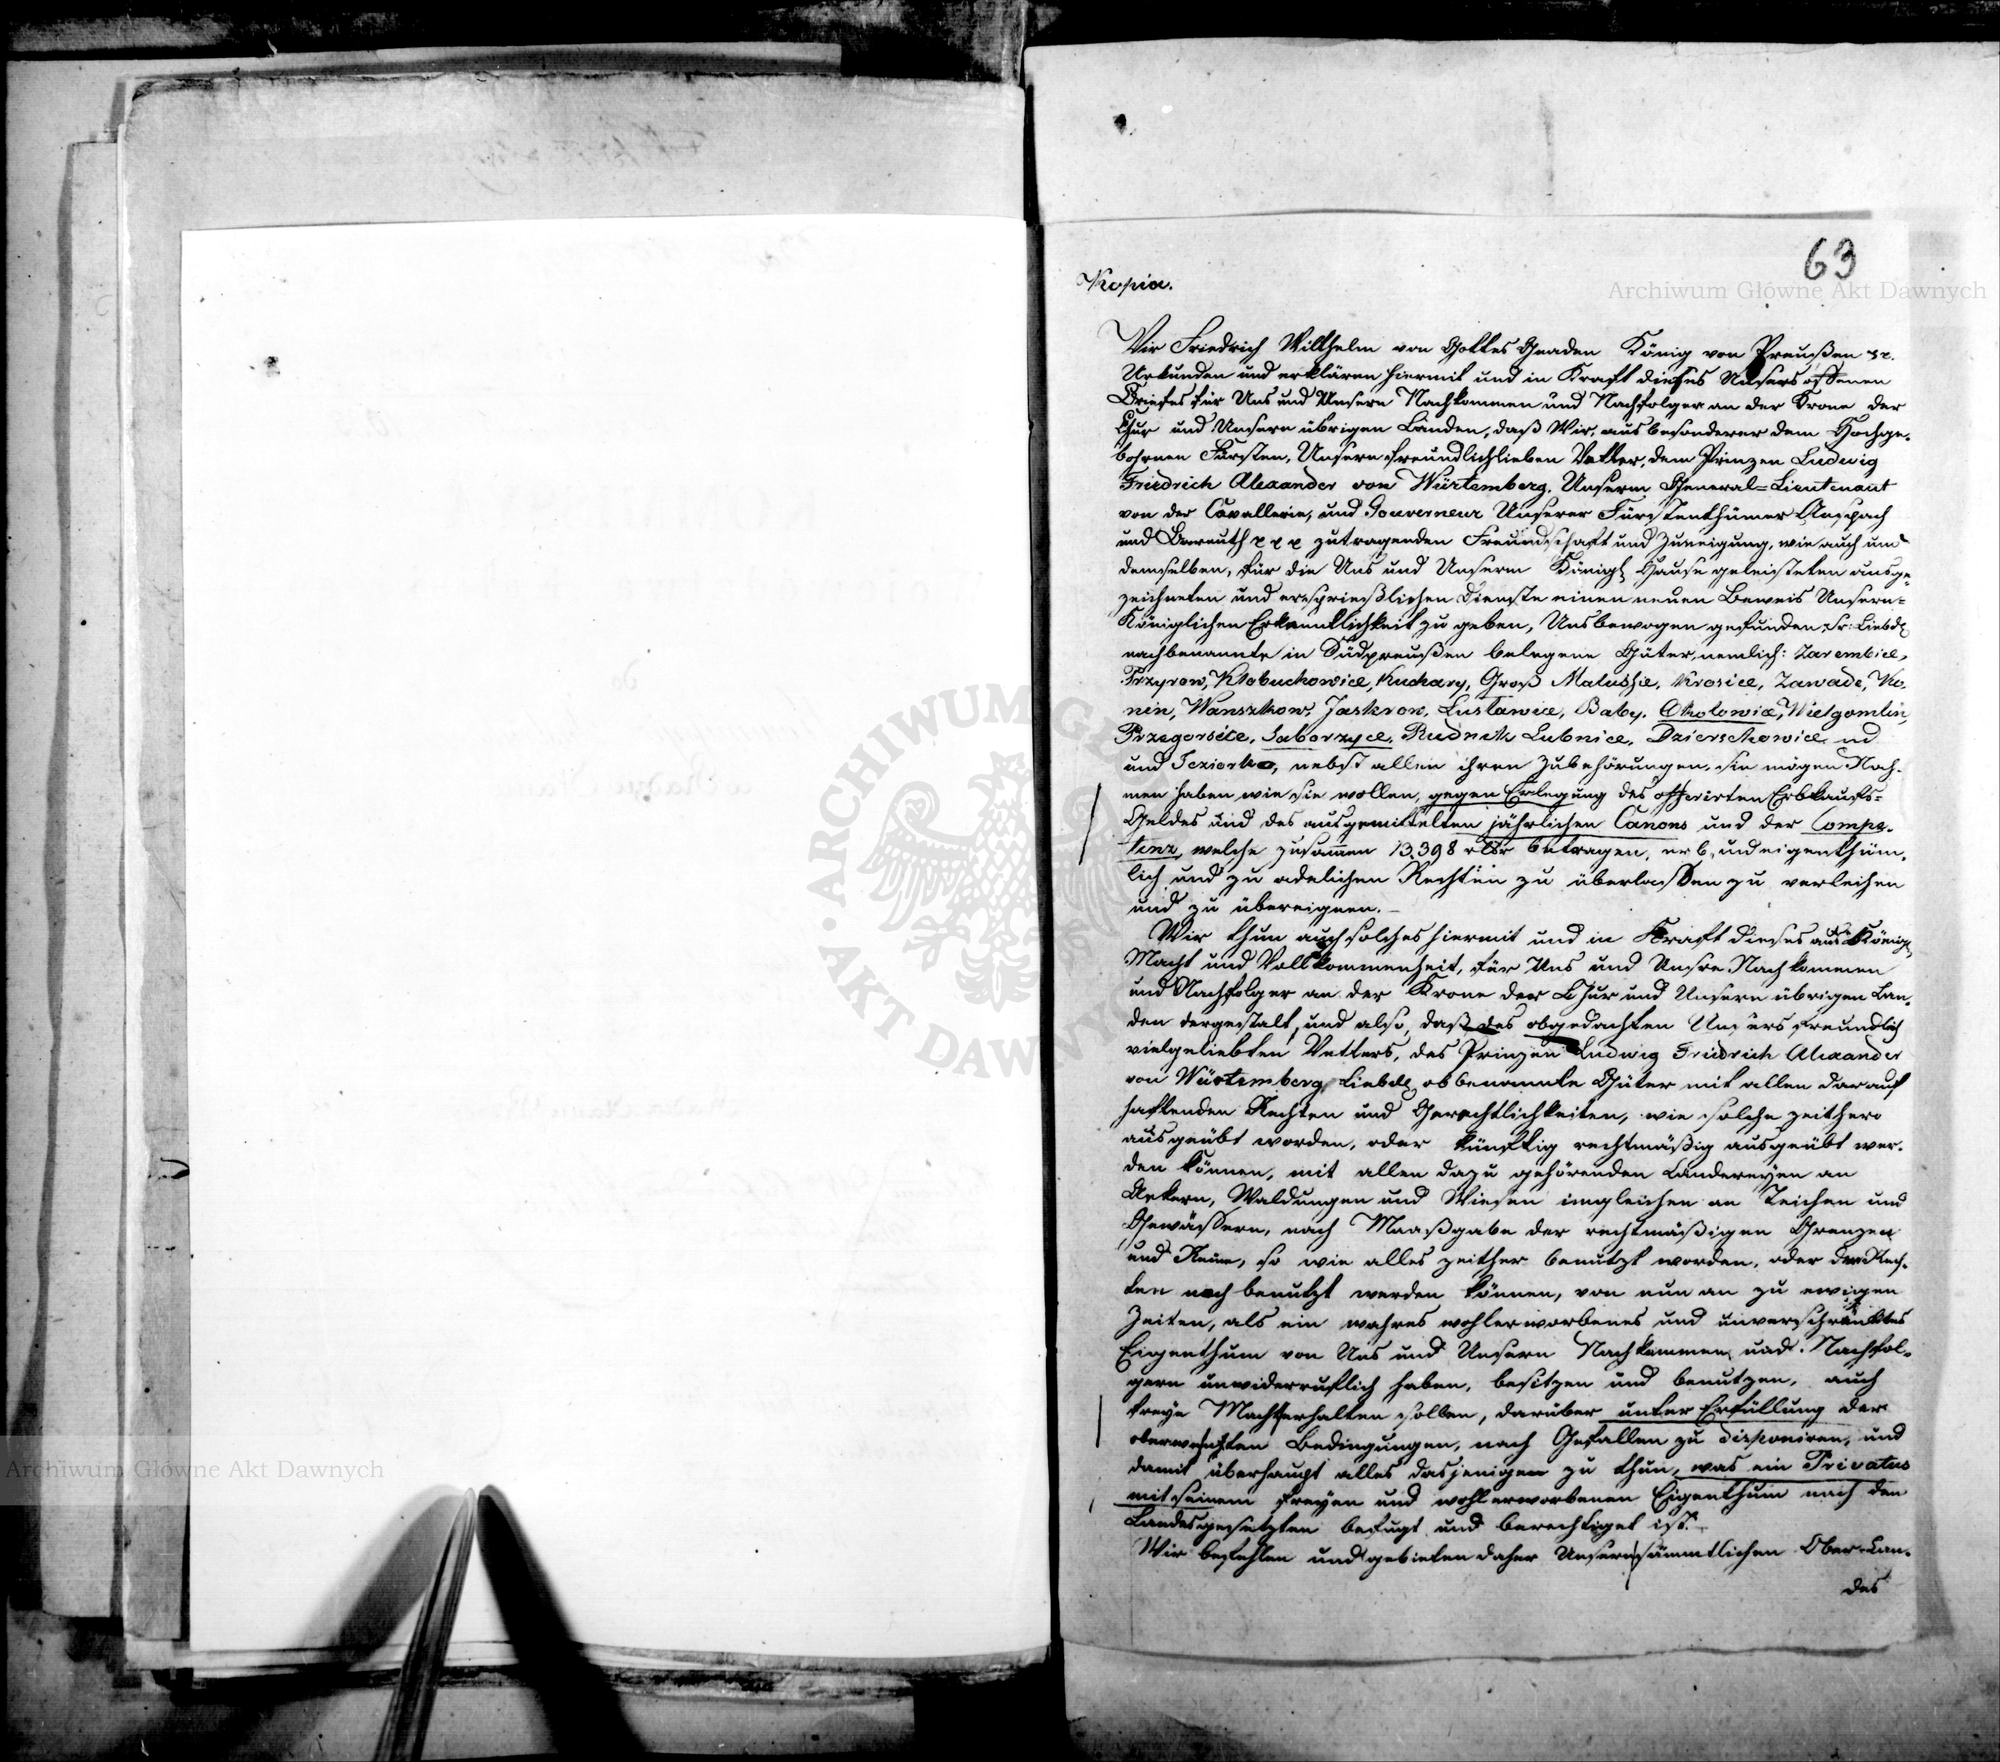 63
Kopia.
Wir Friedrich Willhelm von Gottes Gnaden König von Preußen pp.
Urkunden und erklären hiermit und in Kraft dieses Unsers offenen
Briefes für Uns und Unsern Nachkommen und Nachfolger an der Krone der
Chur und Unsern übrigen Landen, daß Wir, aus besonderer dem Hochge-
bohrnen Fürsten, Unsern freundlichlieben Vetter, dem Prinzen Ludwig
Friedrich Alexander von Würtemberg, Unserm General=Lieutenant
von der Cavallerie, und Gouverneur Unserer Fürstenthümer Anspach
und Bareuth p p p zutragenden Freundschaft und Zuneigung, wie auch um
demselben, für die Uns und Unserm Königl. Hause geleisteten ausge-
zeichneten und ersprießlichen Dienste einen neuen Beweis Unsern=
Königlichen Erkenntlichkeit zu geben, Uns bewogen gefunden, Sr: Liebd.
nachbenannte in Südpreußen belegene Güter, nemlich: Zarembice,
Przyrow, Klobuchowice, Kuchary, Groß Maluszie, Krosice, Zawade, Ko-
nin, Wanszkow, Jaskrow, Lustawice, Baby, Okolowice, Wielgomlin,
Przegorsice, Saborzyce, Rudnik Lubnice, Dzierschowice
und Jeziorko, nebst allen ihren Zubehörungen, sie mögen Nah-
men haben wie sie wollen, gegen Erlegung des offerirten Erbkaufs=
Geldes und des ausgemittelten jährlichen Canons und der Compe-
tenz, welche zusammen 13,398 rtlr betragen, erb, und eigenthüm-
lich und zu adelichen Rechten zu überlassen zu verleihen
und zu übereignen. —
Wir thun auch solches hiermit und in Kraft dieses aus Königl.
Macht und Vollkommenheit, für Uns und Unsre Nachkommen
und Nachfolger an der Krone der Chur und Unsern übrigen Lan-
den dergestalt, und also, daß des obgedachten Unsers freundlich
vielgeliebten Vetters, des Prinzen Ludwig Friedrich Alexander
von Würtemberg, Liebd. obbenannte Güter mit allen darauf
haftenden Rechten und Gerechtlichkeiten, wie solche zeithero
ausgeübt worden, oder künftig rechtmäßig ausgeübt wer-
den können, mit allen dazu gehörenden Ländereyen an
Aekern, Waldungen und Wiesen imgleichen an Teichen und
Gewässern, nach Maaßgabe der rechtmäßigen Grenzen
und Reine, so wie alles zeither benutzt worden, oder den Rech-
ten nach benutzt werden können, von nun an zu ewigen
Zeiten, als ein wahres wohlerworbenes und unverschränktes
Eigenthum von Uns und Unsern Nachkommen und Nachfol-
gern unwiderruflich haben, besitzen und benutzen, auch
freye Macht erhalten sollen, darüber unter Erfüllung der
oberwehnten Bedingungen, nach Gefallen zu disponiren, und
damit überhaupt alles dasjenigen zu thun, was ein Privatus
mit seinem freyen und wohlerworbenen Eigenthum nach den
Landesgesetzten befugt und berechtiget ist. —
Wir befehlen und gebieten daher Unsern sämmtlichen Ober-Lan-
des
Archiwum Główne Akt Dawnych
Archiwum Główne Akt Dawnych
ARCHIWUM GŁ
AKT DAWNYC